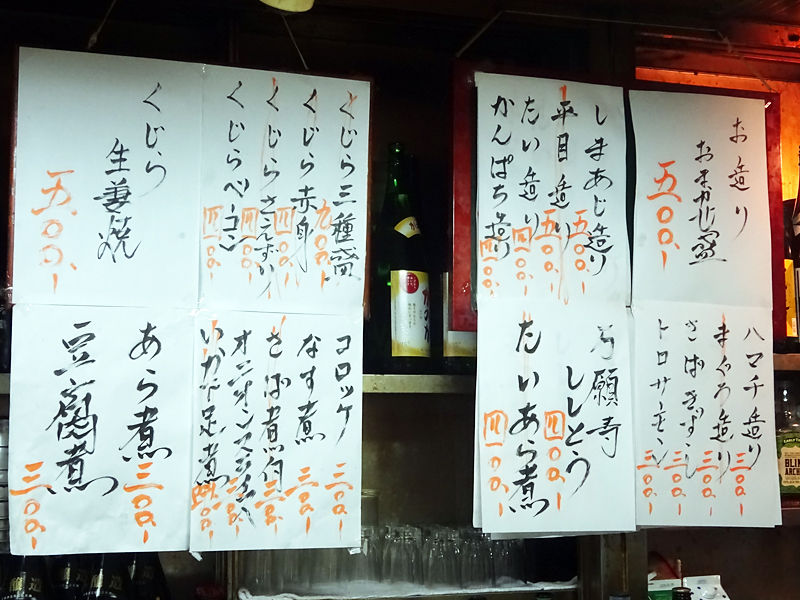 お造り
おまかせ盛
五〇〇、ー
ハマチ造り 三〇〇、ー
まぐろ造り 三〇〇、ー
さばきずし 三〇〇、ー
トロサーモン 三〇〇、ー
しまあじ造り 五〇〇、ー
平目造り 五〇〇、ー
たい造り 四〇〇、ー
かんぱち造り 四〇〇、ー
万願寺
ししとう 四〇〇、ー
たいあら煮 四〇〇、ー
くじら三種盛 九〇〇、ー
くじら赤身 四〇〇、ー
くじらさえずり 四〇〇、ー
くじらベーコン 四〇〇、ー
くじら
生姜焼
五〇〇、ー
コロッケ 三〇〇、ー
なす煮 三〇〇、ー
さば煮付 三〇〇、ー
いか下足煮
あら煮 三〇〇、ー
豆腐煮 三〇〇、ー